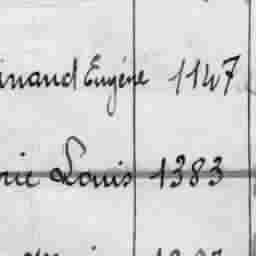 inand Eugène 1147
rie Louis 1383